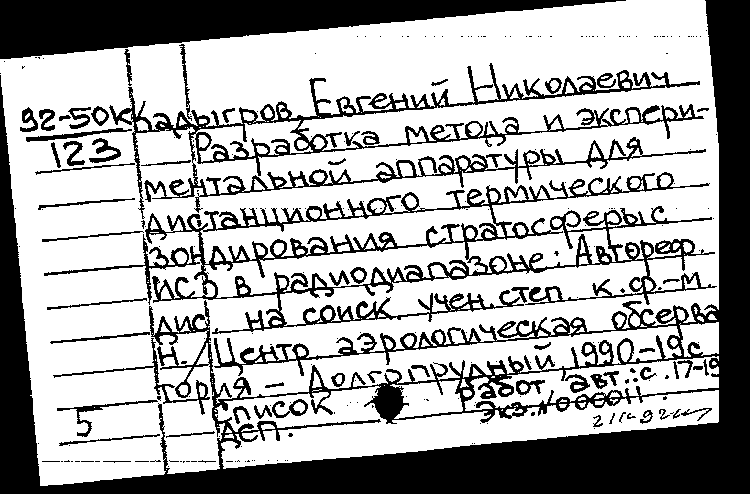 92-50к Кадыгров, Евгений Николаевич
123 Разработка метода и экспери-
ментальной аппаратуры для
дистанционного термического
зондирования стратосферы с
ИСЗ в радиодиапазоне: Автореф.
дис. на соиск. учен. степ. к. ф.-м.
н. / Центр. аэрологическая обсерва
тория. - Долгопрудный, 1990.-19с
Список работ. авт.: с. 17-19
5 ДСП. Экз. №000011.